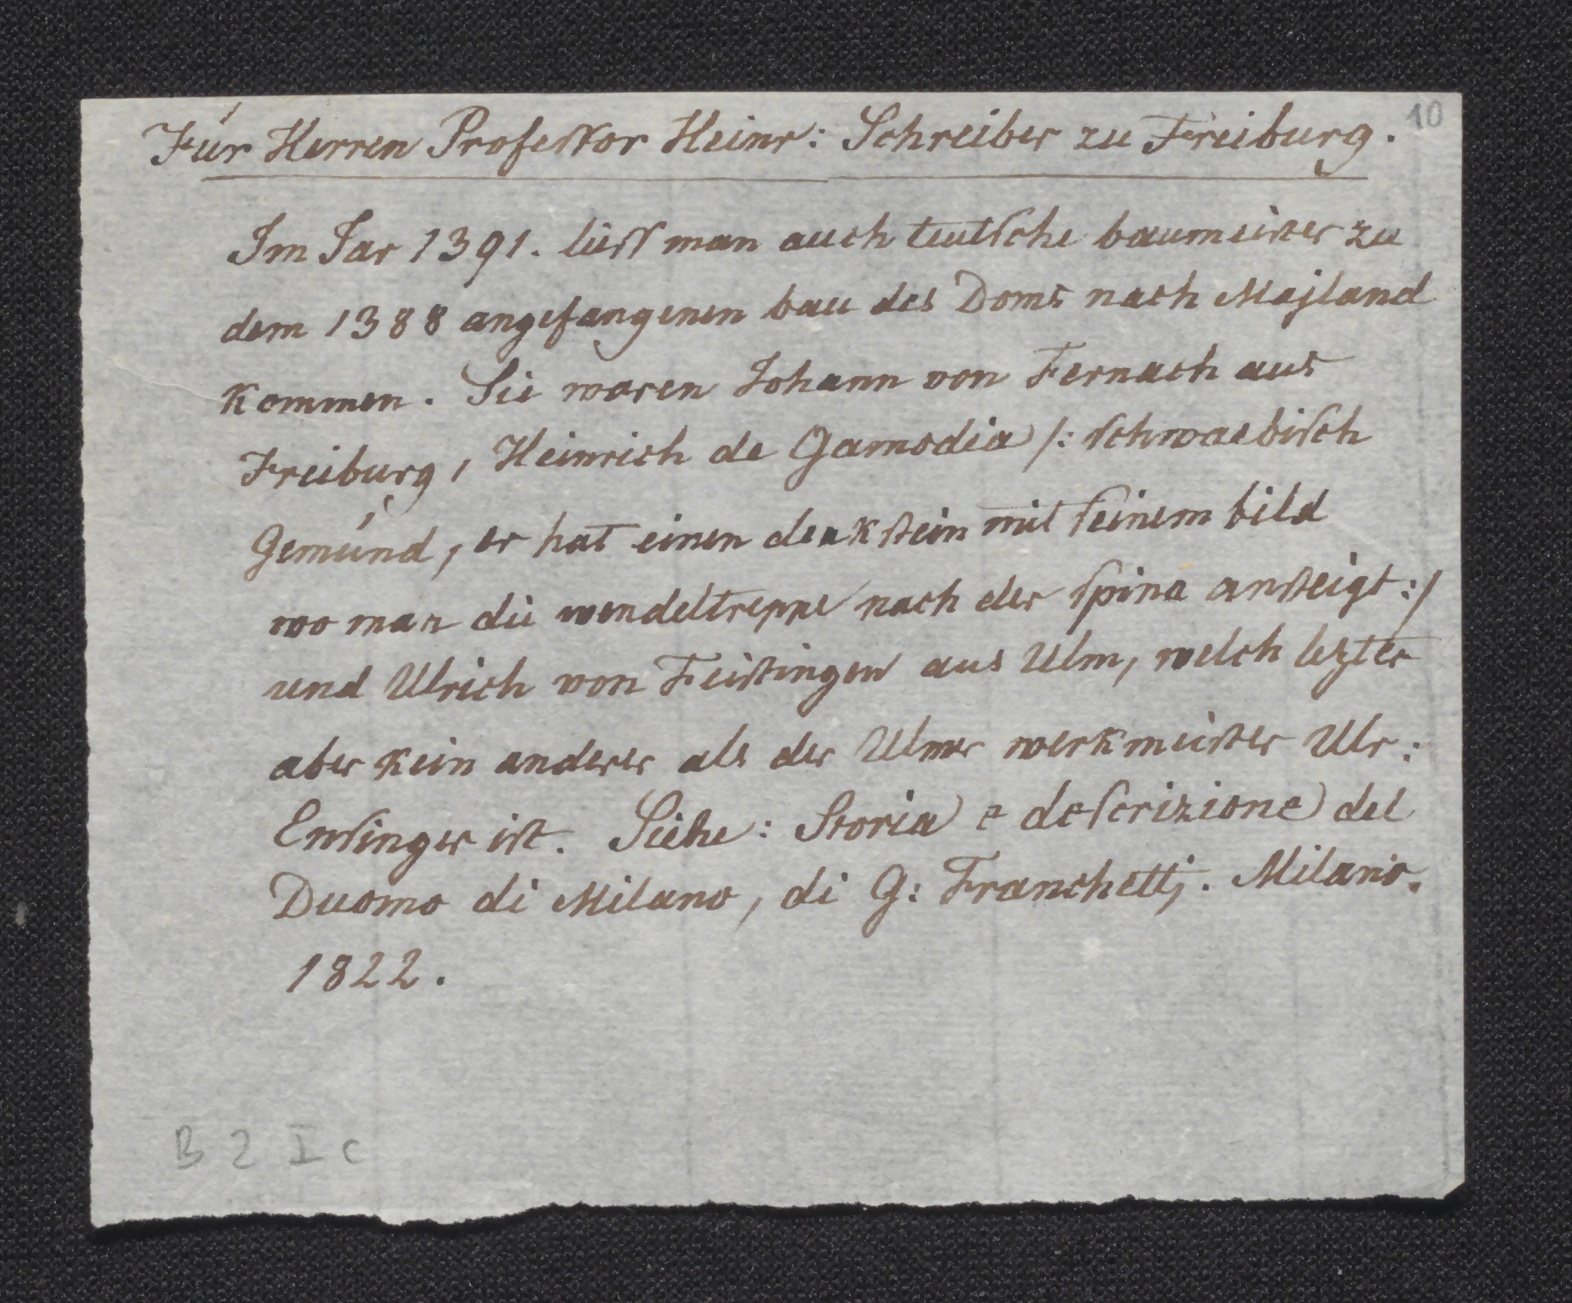 10
Für Herren Professor Heinr: Schreiber zu Freiburg.
Im Jar 1391. liess man auch teutsche baumeister zu
dem 1388 angefangenen bau des Doms nach Majland
kommen. Sie waren Johann von Fernach aus
Freiburg, Heinrich de Gamodia /: schwaebisch
Gemünd, er hat einen denkstein mit seinem bild
wo man die wendeltreppe nach der spina ansteigt :/
und Ulrich von Feistingen aus Ulm, welch lezter
aber kein anderer als der Ulmer werkmeister Ulr:
Ensinger ist. Siehe: Storia e descrizione del
Duomo di Milano, di G: Franchetti. Milano.
1822.
B 2 I c